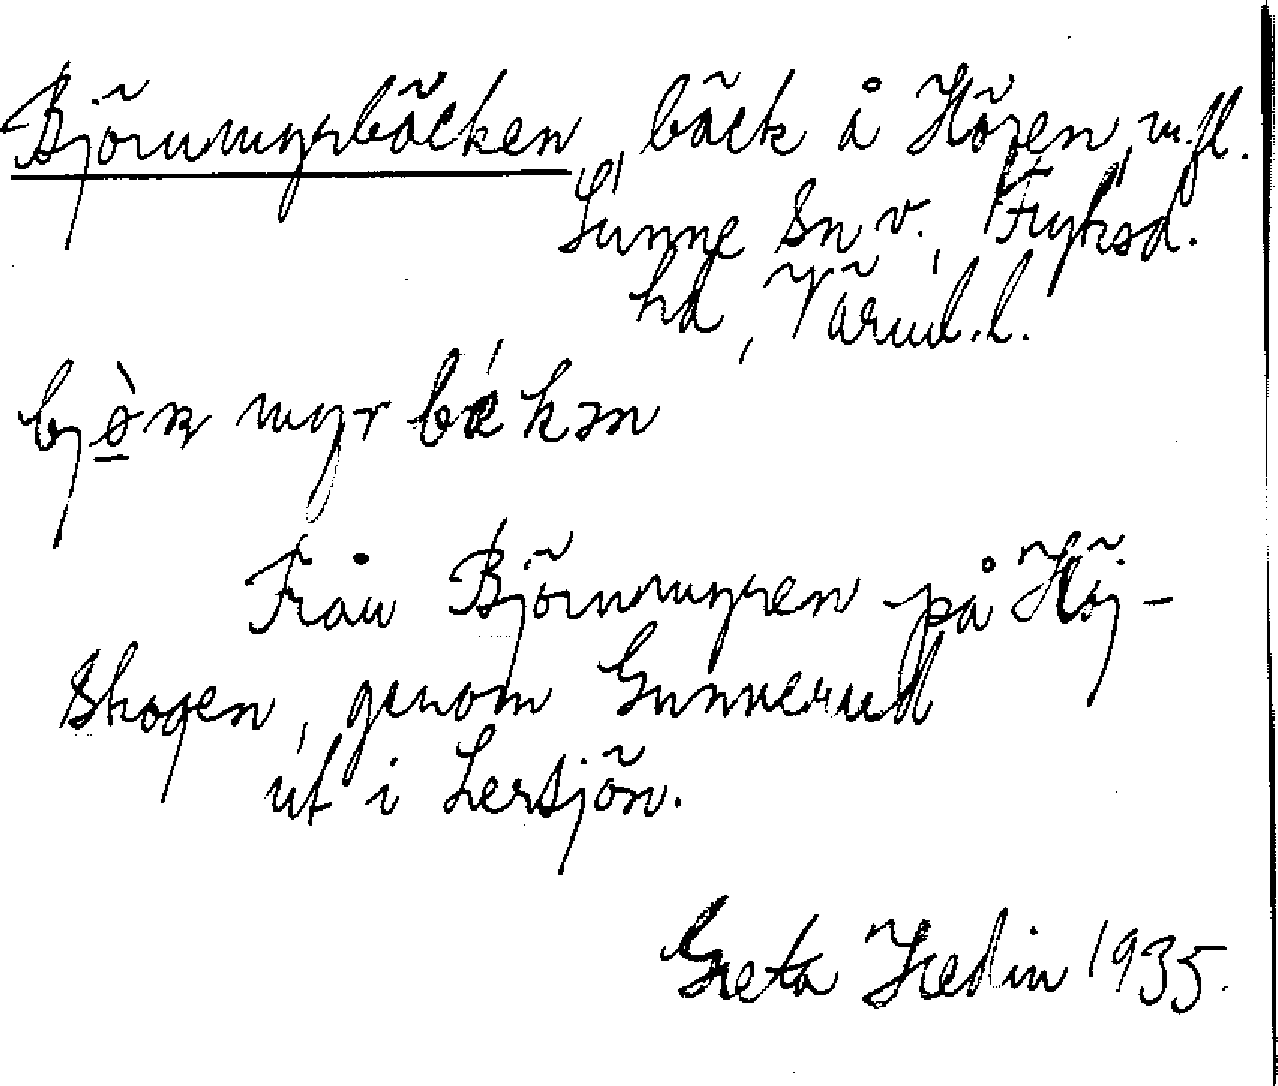 Björnmyrbäcken, bäck å Höjen, m.fl.
Sunne Sn v., Fryksd.
hd, Värml.l.
bjò̱ɳ myr bǽkən
Från Björnmyren på Höj-
skogen, genom Gunnerud
ut i Lersjön.
Greta Hedin 1935.